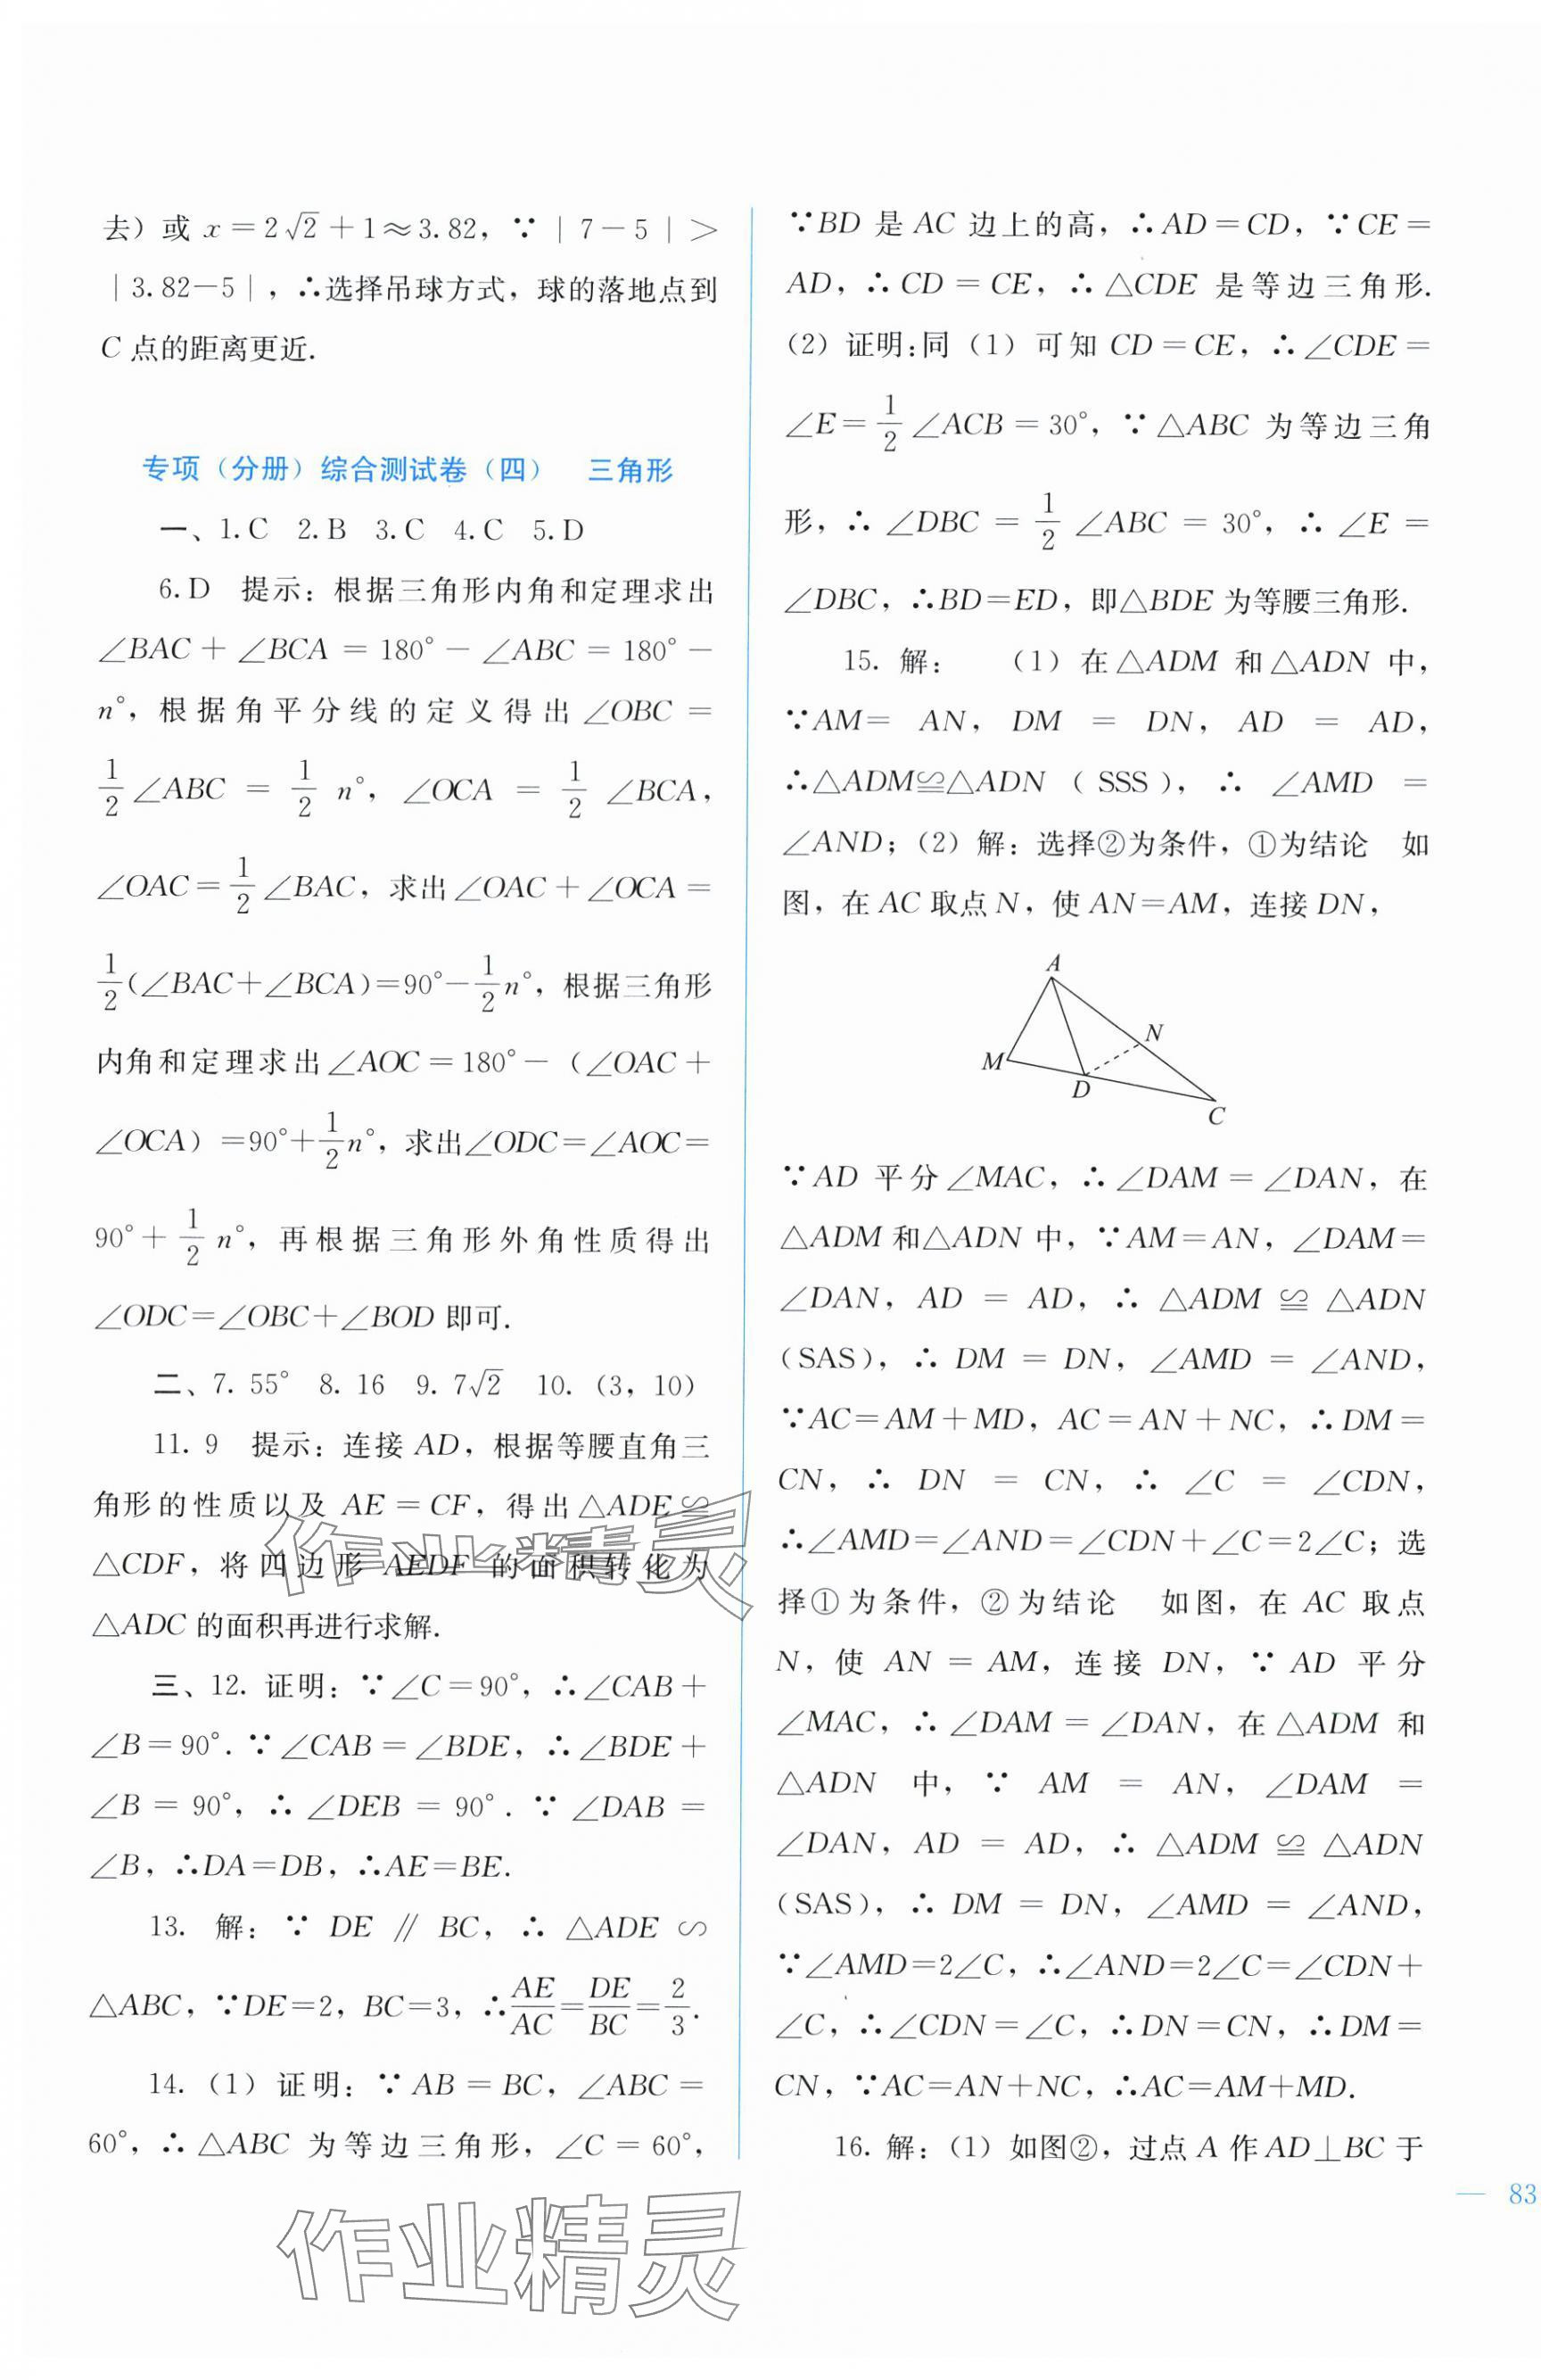 去）或 x=2√2+1≈3.82，∵|7-5|>
|3.82-5|，∴选择吊球方式，球的落地点到
C 点的距离更近.
专项（分册）综合测试卷（四） 三角形
一、1.C 2.B 3.C 4.C 5.D
6.D 提示：根据三角形内角和定理求出
∠BAC+∠BCA=180°-∠ABC=180°-
n°，根据角平分线的定义得出∠OBC=
1/2∠ABC=1/2 n°，∠OCA=1/2∠BCA，
∠OAC=1/2∠BAC，求出∠OAC+∠OCA=
1/2(∠BAC+∠BCA)=90°-1/2n°，根据三角形
内角和定理求出∠AOC=180°-（∠OAC+
∠OCA）=90°+1/2n°，求出∠ODC=∠AOC=
90°+1/2 n°，再根据三角形外角性质得出
∠ODC=∠OBC+∠BOD 即可.
二、7. 55° 8. 16 9. 7√2 10.（3，10）
11. 9 提示：连接 AD，根据等腰直角三
角形的性质以及 AE=CF，得出△ADE≌
△CDF，将四边形 AEDF 的面积转化为
△ADC 的面积再进行求解.
三、12. 证明：∵∠C=90°，∴∠CAB+
∠B=90°.∵∠CAB=∠BDE，∴∠BDE+
∠B=90°，∴∠DEB=90°.∵∠DAB=
∠B，∴DA=DB，∴AE=BE.
13. 解：∵DE∥BC，∴△ADE∽
△ABC，∵DE=2，BC=3，∴AE/AC=DE/BC=2/3.
14.（1）证明：∵AB=BC，∠ABC=
60°，∴△ABC 为等边三角形，∠C=60°，
∵BD 是 AC 边上的高，∴AD=CD，∵CE=
AD，∴CD=CE，∴△CDE 是等边三角形.
（2）证明:同（1）可知 CD=CE，∴∠CDE=
∠E=1/2∠ACB=30°，∵△ABC 为等边三角
形，∴∠DBC=1/2∠ABC=30°，∴∠E=
∠DBC，∴BD=ED，即△BDE 为等腰三角形.
15. 解：（1）在△ADM 和△ADN 中，
∵AM=AN，DM=DN，AD=AD，
∴△ADM≌△ADN（SSS），∴∠AMD=
∠AND；（2）解：选择②为条件，①为结论 如
图，在 AC 取点 N，使 AN=AM，连接 DN，
A
N
M
D
C
∵AD 平分∠MAC，∴∠DAM=∠DAN，在
△ADM 和△ADN 中，∵AM=AN，∠DAM=
∠DAN，AD=AD，∴△ADM≌△ADN
（SAS），∴DM=DN，∠AMD=∠AND，
∵AC=AM+MD，AC=AN+NC，∴DM=
CN，∴DN=CN，∴∠C=∠CDN，
∴∠AMD=∠AND=∠CDN+∠C=2∠C；选
择①为条件，②为结论 如图，在 AC 取点
N，使 AN=AM，连接 DN，∵AD 平分
∠MAC，∴∠DAM=∠DAN，在△ADM 和
△ADN 中，∵AM=AN，∠DAM=
∠DAN，AD=AD，∴△ADM≌△ADN
（SAS），∴DM=DN，∠AMD=∠AND，
∵∠AMD=2∠C，∴∠AND=2∠C=∠CDN+
∠C，∴∠CDN=∠C，∴DN=CN，∴DM=
CN，∵AC=AN+NC，∴AC=AM+MD.
16. 解：（1）如图②，过点 A 作 AD⊥BC 于
— 83
作业精灵
作业精灵